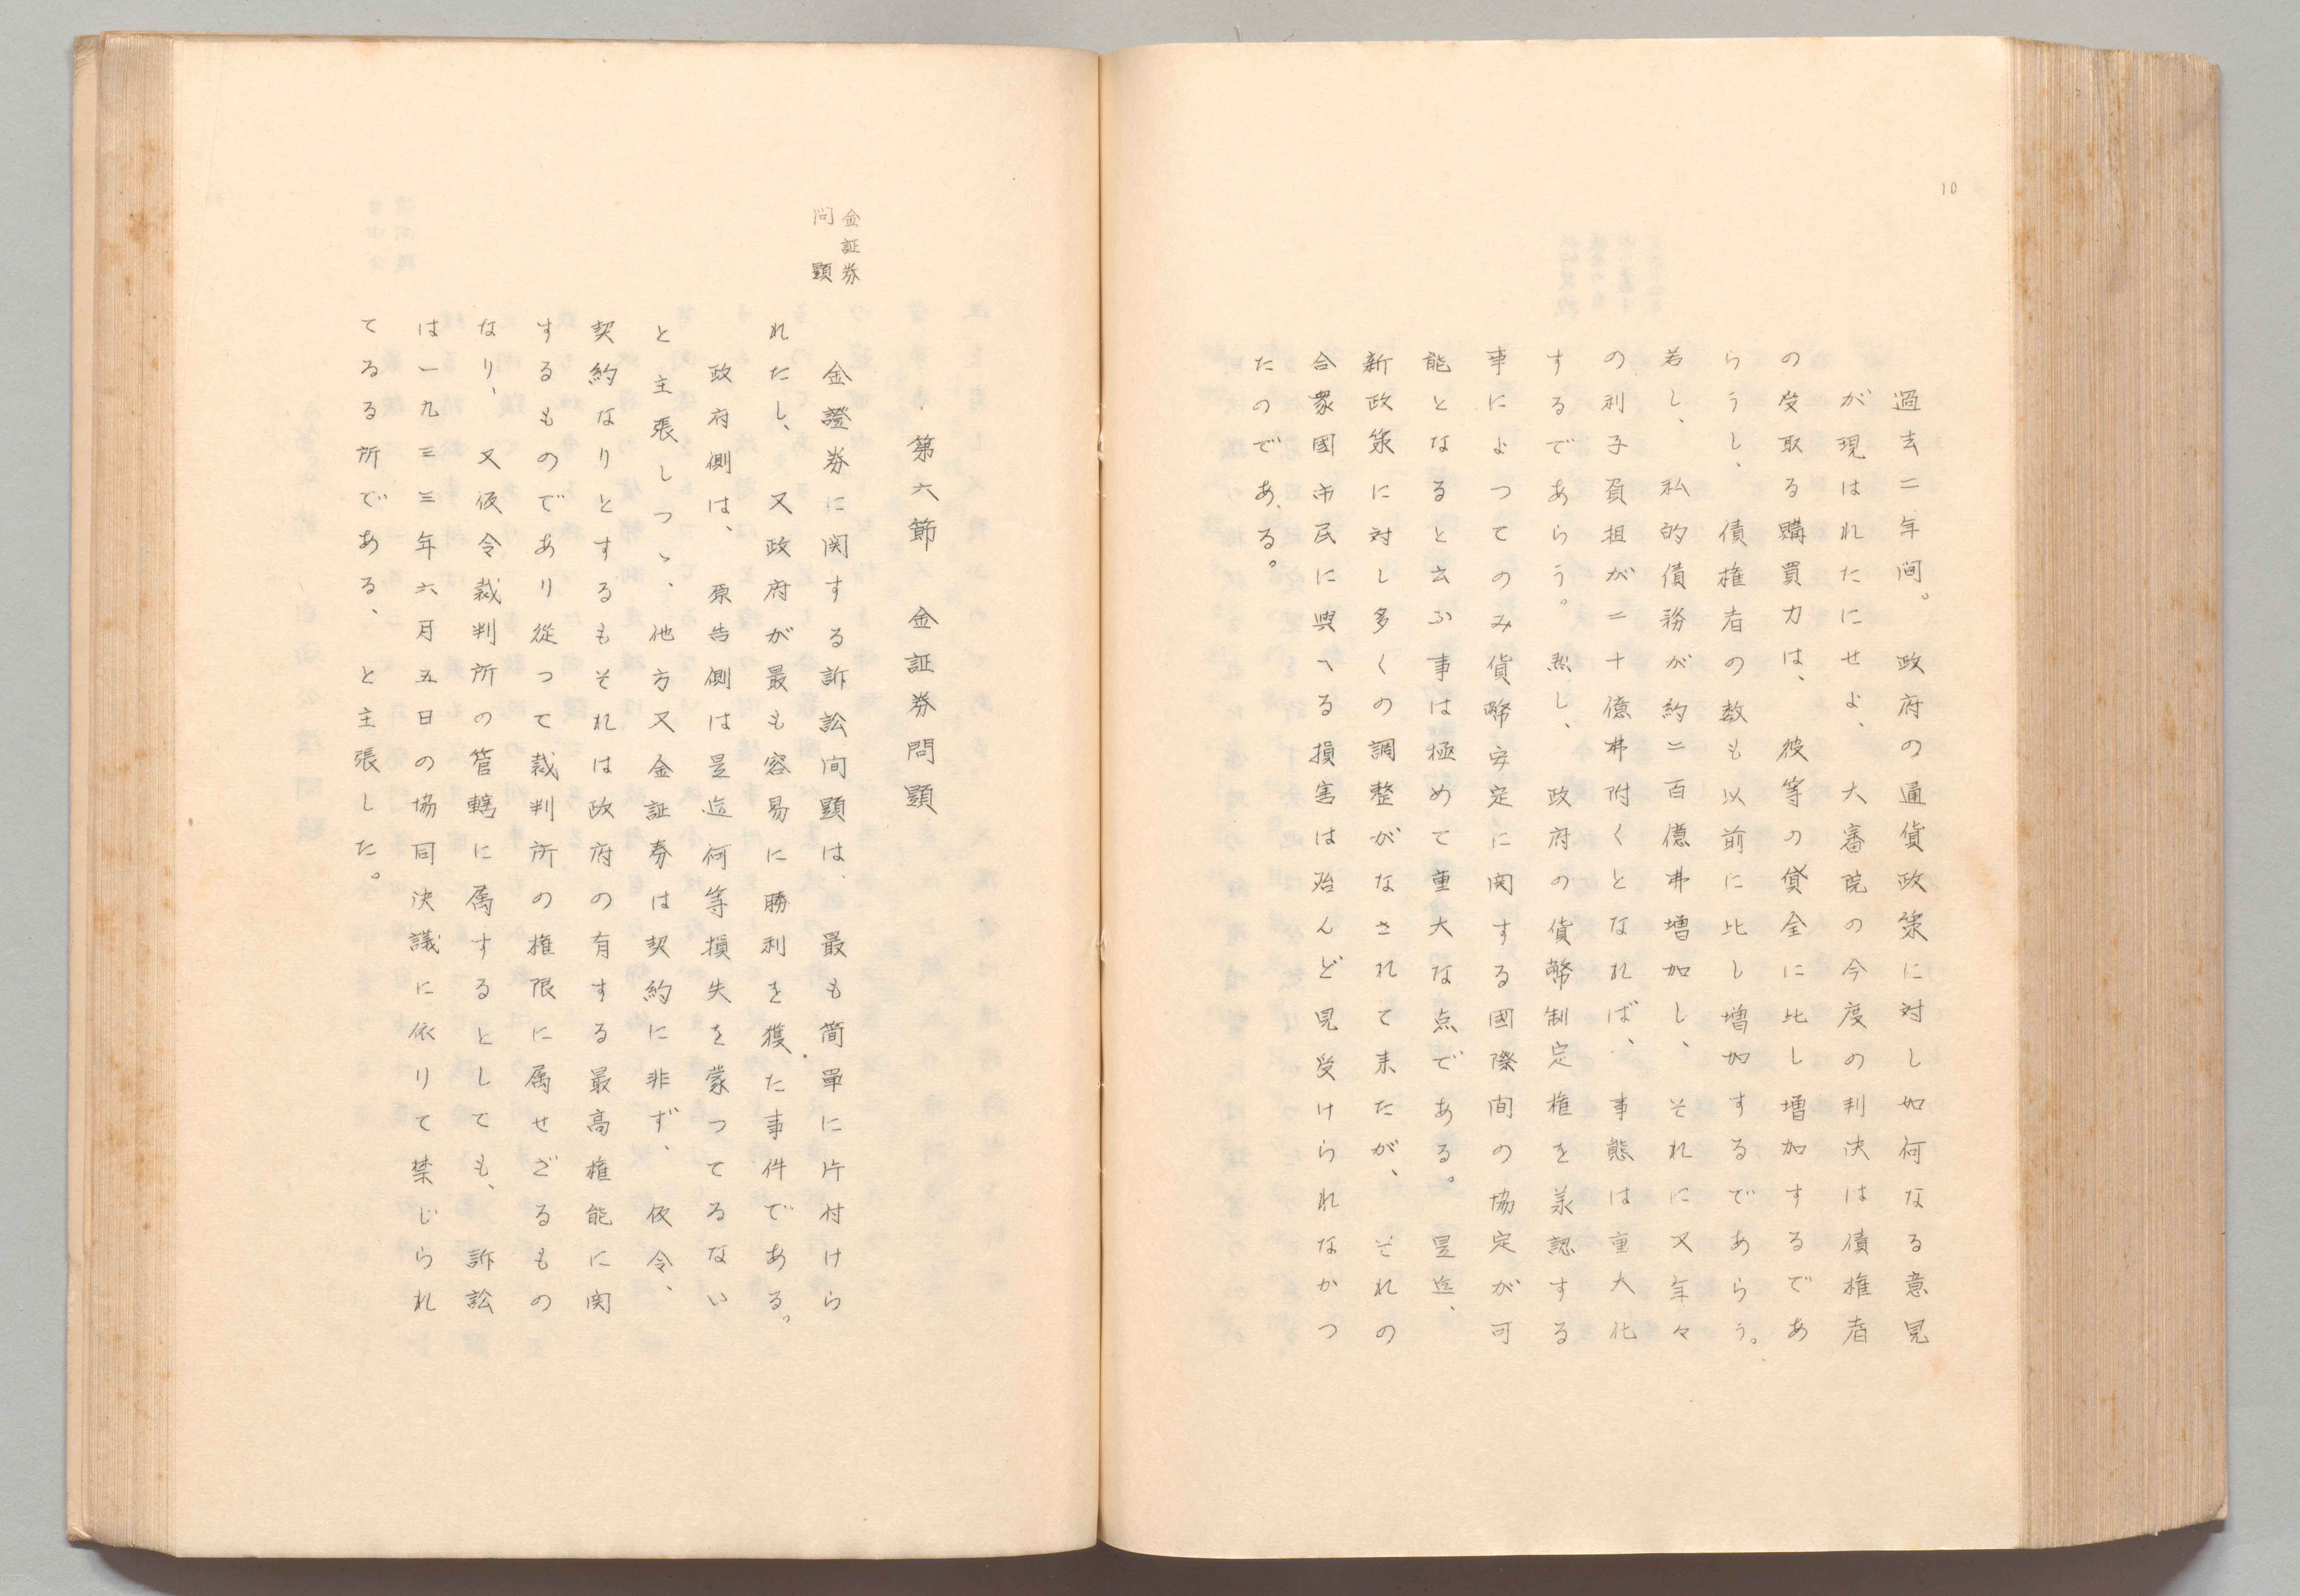 10
過去二年间。政府の通貨政策に対し如何なる意見
が現はれたにせよ、大審院の今度の判決は債権者
の受取る購買力は、彼等の貸金に比し増加するであ
らうし、債権者の数も以前に比し増加するであらう。
若し、私的債務が約二百億弗増加し、それに又年々
の利子負担が二十億弗附くとなれば、事態は重大化
するであらう。然し、政府の貨幣制定権を羕認する
事によつてのみ貨幣安定に関する國際间の協定が可
能となると云ふ事は極めて重大な点である。是迄、
新政策に対し多くの調整がなされて来たが、それの
合衆國市民に與へる損害は殆んど見受けられなかつ
たのである。
第六節 金証券問題
金証券
问題
金證券に関する訴訟间題は、最も简單に片付けら
れたし、又政府が最も容易に勝利を獲た事件である。
政府側は、原告側は是迄何等損失を蒙つてゐない
と主張しつゝ、他方又金証券は契約に非ず、仮令、
契約なりとするもそれは政府の有する最高権能に関
するものであり従つて裁判所の権限に属せざるもの
なり、又仮令裁判所の管轄に属するとしても、訴訟
は一九三三年六月五日の協同決議に依りて禁じられ
てゐる所である、と主張した。